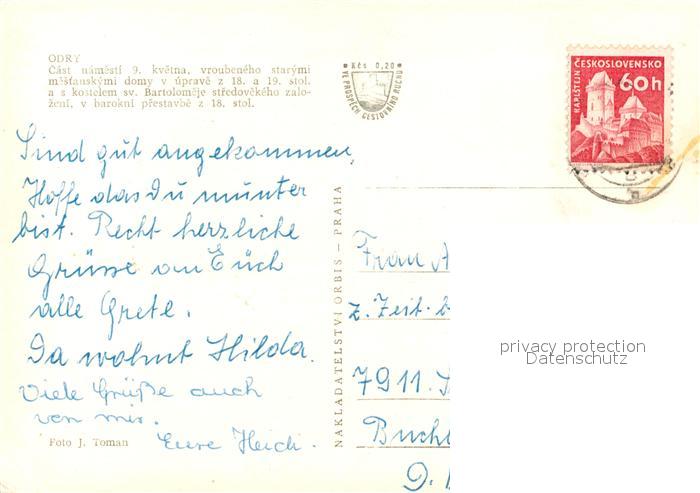 ODRY
Část náměstí 9. května, vroubeného starými
měšťanskými domy v úpravě z 18. a 19. stol.
a s kostelem sv. Bartoloměje středověkého zalo-
žení, v barokní přestavbě z 18. stol.
Kčs 0,20
VE PROSPĚCH CESTOVNÍHO RUCHU
ČESKOSLOVENSKO
60h
KARLŠTEJN
Sind gut angekommen,
Hoffe das Du munter
bist. Recht herzliche
Grüsse an Euch
alle Grete.
Da wohnt Hilda.
Viele Grüße auch
von mir.
Eure Heidi.
Foto J. Toman
NAKLADATELSTVÍ ORBIS – PRAHA
Frau A
z. Zeit. b
7911. S
Buch
D.
privacy protection
Datenschutz